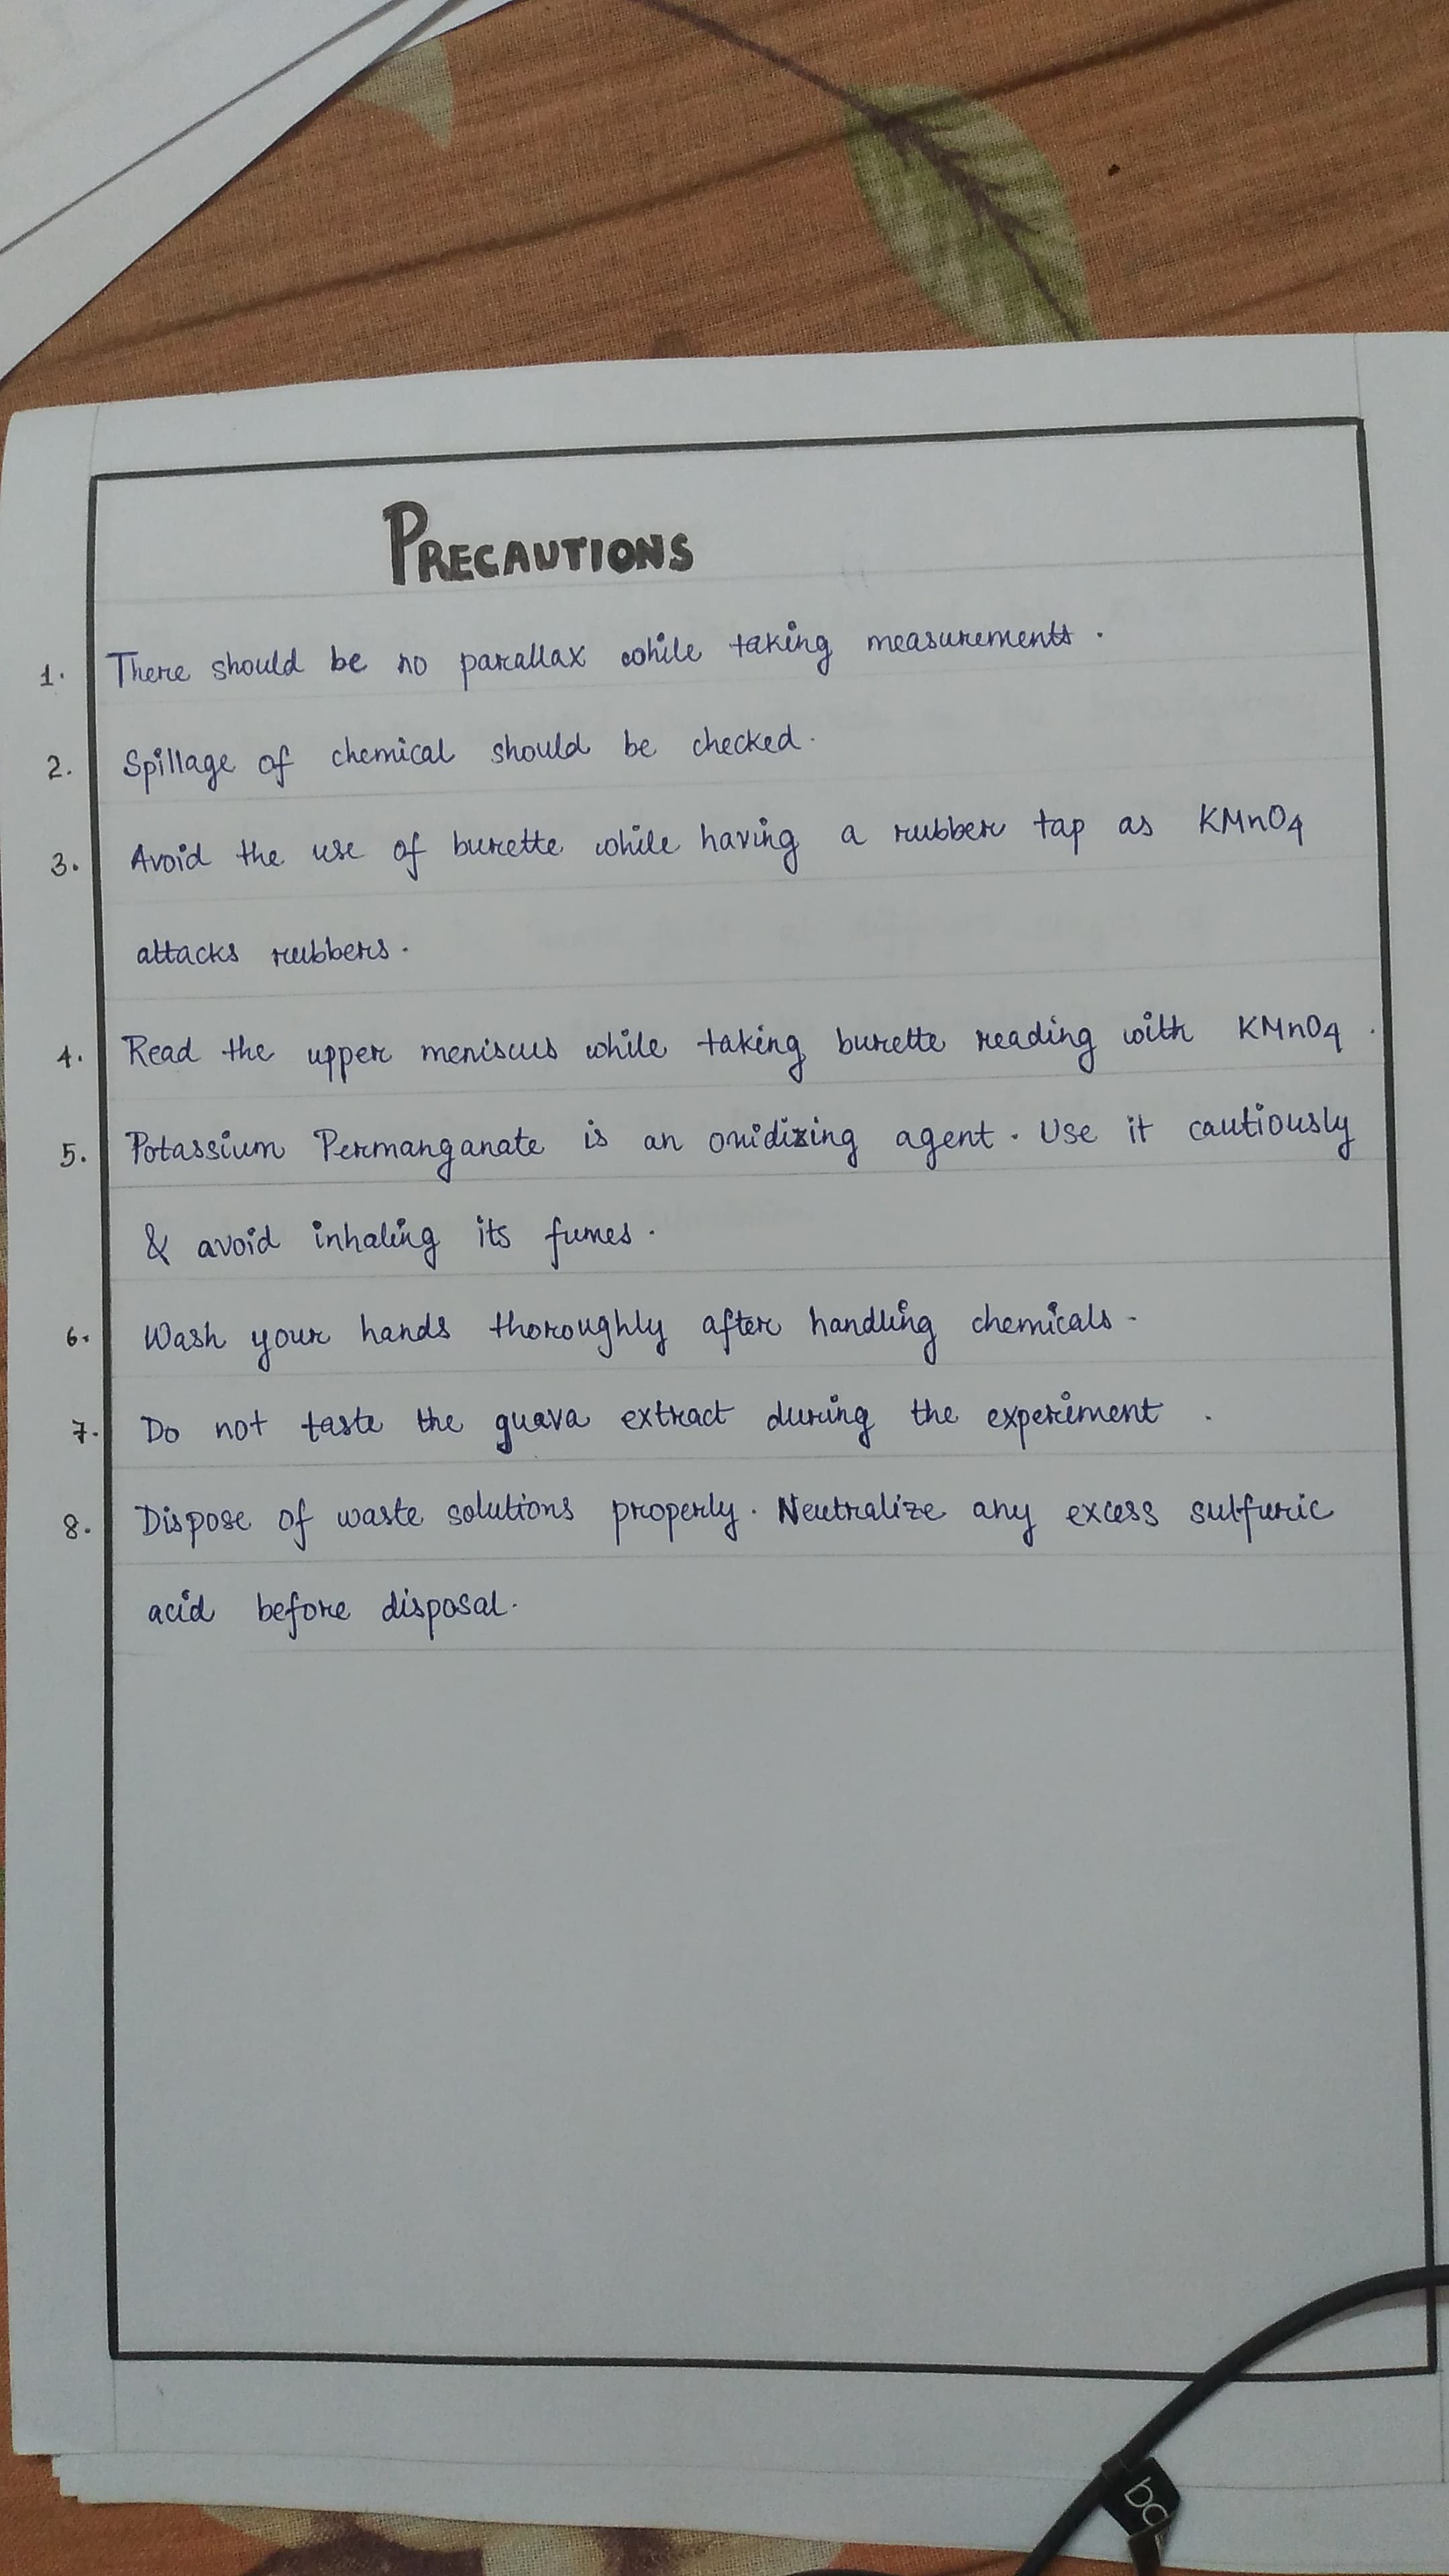 PRECAUTIONS
1. There should be no parallax while taking measurements.
2. Spillage of chemical should be checked.
3. Avoid the use of burette while having a rubber tap as KMnO4
attacks rubbers.
4. Read the upper meniscus while taking burette reading with KMnO4.
5. Potassium Permanganate is an oxidizing agent. Use it cautiously
& avoid inhaling its fumes.
6. Wash your hands thoroughly after handling chemicals.
7. Do not taste the guava extract during the experiment.
8. Dispose of waste solutions properly. Neutralize any excess sulfuric
acid before disposal.